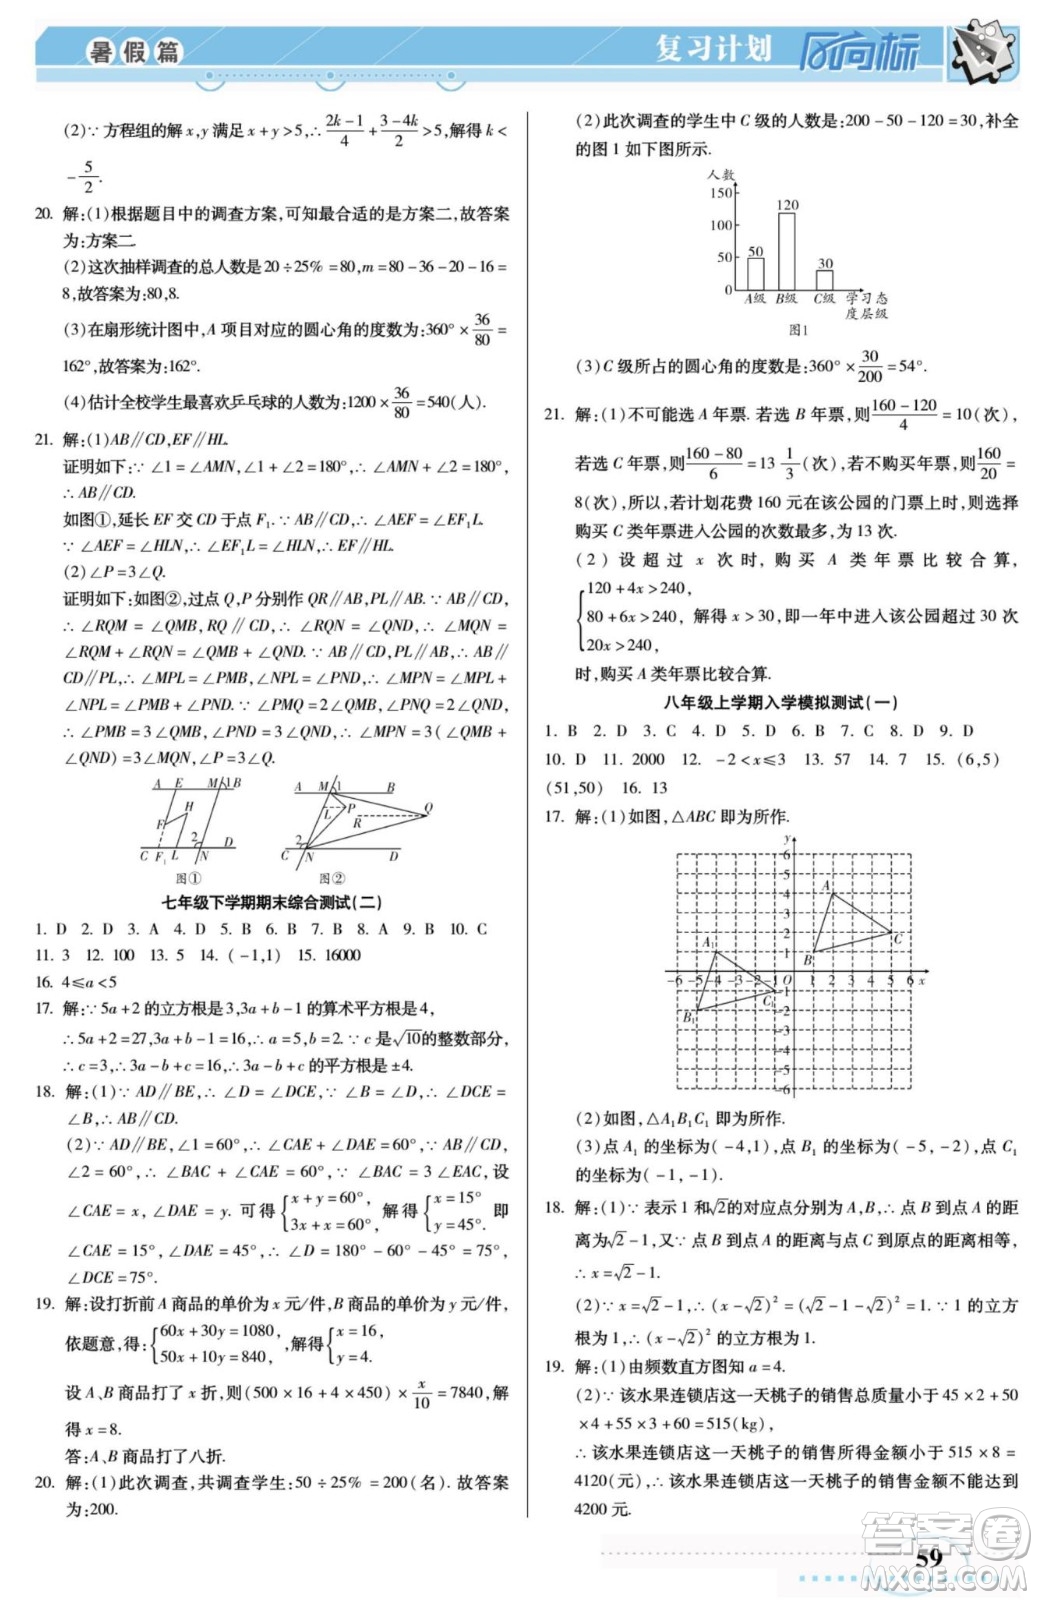 暑假篇
复习计划 风向标
(2)∵方程组的解x,y满足x+y>5,∴(2k-1)/4+(3-4k)/2>5,解得k<
-5/2.
20. 解:(1)根据题目中的调查方案,可知最合适的是方案二,故答案
为:方案二.
(2)这次抽样调查的总人数是20÷25%=80,m=80-36-20-16=
8,故答案为:80,8.
(3)在扇形统计图中,A项目对应的圆心角的度数为:360°×36/80=
162°,故答案为:162°.
(4)估计全校学生最喜欢乒乓球的人数为:1200×36/80=540(人).
21. 解:(1)AB∥CD,EF∥HL.
证明如下:∵∠1=∠AMN,∠1+∠2=180°,∴∠AMN+∠2=180°,
∴AB∥CD.
如图①,延长EF交CD于点F₁.∵AB∥CD,∴∠AEF=∠EF₁L.
∵∠AEF=∠HLN,∴∠EF₁L=∠HLN,∴EF∥HL.
(2)∠P=3∠Q.
证明如下:如图②,过点Q,P分别作QR∥AB,PL∥AB.∵AB∥CD,
∴∠RQM=∠QMB,RQ∥CD,∴∠RQN=∠QND,∴∠MQN=
∠RQM+∠RQN=∠QMB+∠QND.∵AB∥CD,PL∥AB,∴AB∥
CD∥PL,∴∠MPL=∠PMB,∠NPL=∠PND,∴∠MPN=∠MPL+
∠NPL=∠PMB+∠PND.∵∠PMQ=2∠QMB,∠PNQ=2∠QND,
∴∠PMB=3∠QMB,∠PND=3∠QND,∴∠MPN=3(∠QMB+
∠QND)=3∠MQN,∠P=3∠Q.
A E M 1 B
H
F
2 D
C F₁ L N
图①
A M 1 B
L P
R Q
2
C N D
图②
七年级下学期期末综合测试(二)
1. D 2. D 3. A 4. D 5. B 6. B 7. B 8. A 9. B 10. C
11. 3 12. 100 13. 5 14. (-1,1) 15. 16000
16. 4≤a<5
17. 解:∵5a+2的立方根是3,3a+b-1的算术平方根是4,
∴5a+2=27,3a+b-1=16,∴a=5,b=2.∵c是√10的整数部分,
∴c=3,∴3a-b+c=16,∴3a-b+c的平方根是±4.
18. 解:(1)∵AD∥BE,∴∠D=∠DCE,∵∠B=∠D,∴∠DCE=
∠B,∴AB∥CD.
(2)∵AD∥BE,∠1=60°,∴∠CAE+∠DAE=60°.∵AB∥CD,
∠2=60°,∴∠BAC+∠CAE=60°,∵∠BAC=3∠EAC,设
∠CAE=x,∠DAE=y. 可得{x+y=60°, 3x+x=60°, 解得{x=15° y=45°. 即
∠CAE=15°,∠DAE=45°,∴∠D=180°-60°-45°=75°,
∠DCE=75°.
19. 解:设打折前A商品的单价为x元/件,B商品的单价为y元/件,
依题意,得:{60x+30y=1080, 50x+10y=840, 解得{x=16, y=4.
设A、B商品打了x折,则(500×16+4×450)×x/10=7840,解
得x=8.
答:A、B商品打了八折.
20. 解:(1)此次调查,共调查学生:50÷25%=200(名). 故答案
为:200.
(2)此次调查的学生中C级的人数是:200-50-120=30,补全
的图1如下图所示.
人数
150
120
100
50 50
30
0
A级 B级 C级 学习态
度层级
图1
(3)C级所占的圆心角的度数是:360°×30/200=54°.
21. 解:(1)不可能选A年票. 若选B年票,则(160-120)/4=10(次),
若选C年票,则(160-80)/6=13 1/3(次),若不购买年票,则160/20=
8(次),所以,若计划花费160元在该公园的门票上时,则选择
购买C类年票进入公园的次数最多,为13次.
(2)设超过x次时,购买A类年票比较合算,
{120+4x>240,
80+6x>240, 解得x>30,即一年中进入该公园超过30次
20x>240,
时,购买A类年票比较合算.
八年级上学期入学模拟测试(一)
1. B 2. D 3. C 4. D 5. D 6. B 7. C 8. D 9. D
10. D 11. 2000 12. -2<x≤3 13. 57 14. 7 15. (6,5)
(51,50) 16. 13
17. 解:(1)如图,△ABC即为所作.
y
6
5
A 4
3
2 C
A₁ 1 B
-6 -5 -4 -3 -2 -1 O 1 2 3 4 5 6 x
C₁ -1
B₁ -2
-3
-4
-5
-6
(2)如图,△A₁B₁C₁即为所作.
(3)点A₁的坐标为(-4,1),点B₁的坐标为(-5,-2),点C₁
的坐标为(-1,-1).
18. 解:(1)∵表示1和√2的对应点分别为A,B,∴点B到点A的距
离为√2-1,又∵点B到点A的距离与点C到原点的距离相等,
∴x=√2-1.
(2)∵x=√2-1,∴(x-√2)²=(√2-1-√2)²=1.∵1的立方
根为1,∴(x-√2)²的立方根为1.
19. 解:(1)由频数直方图知a=4.
(2)∵该水果连锁店这一天桃子的销售总质量小于45×2+50
×4+55×3+60=515(kg),
∴该水果连锁店这一天桃子的销售所得金额小于515×8=
4120(元),∴该水果连锁店这一天桃子的销售金额不能达到
4200元.
59
答案圈